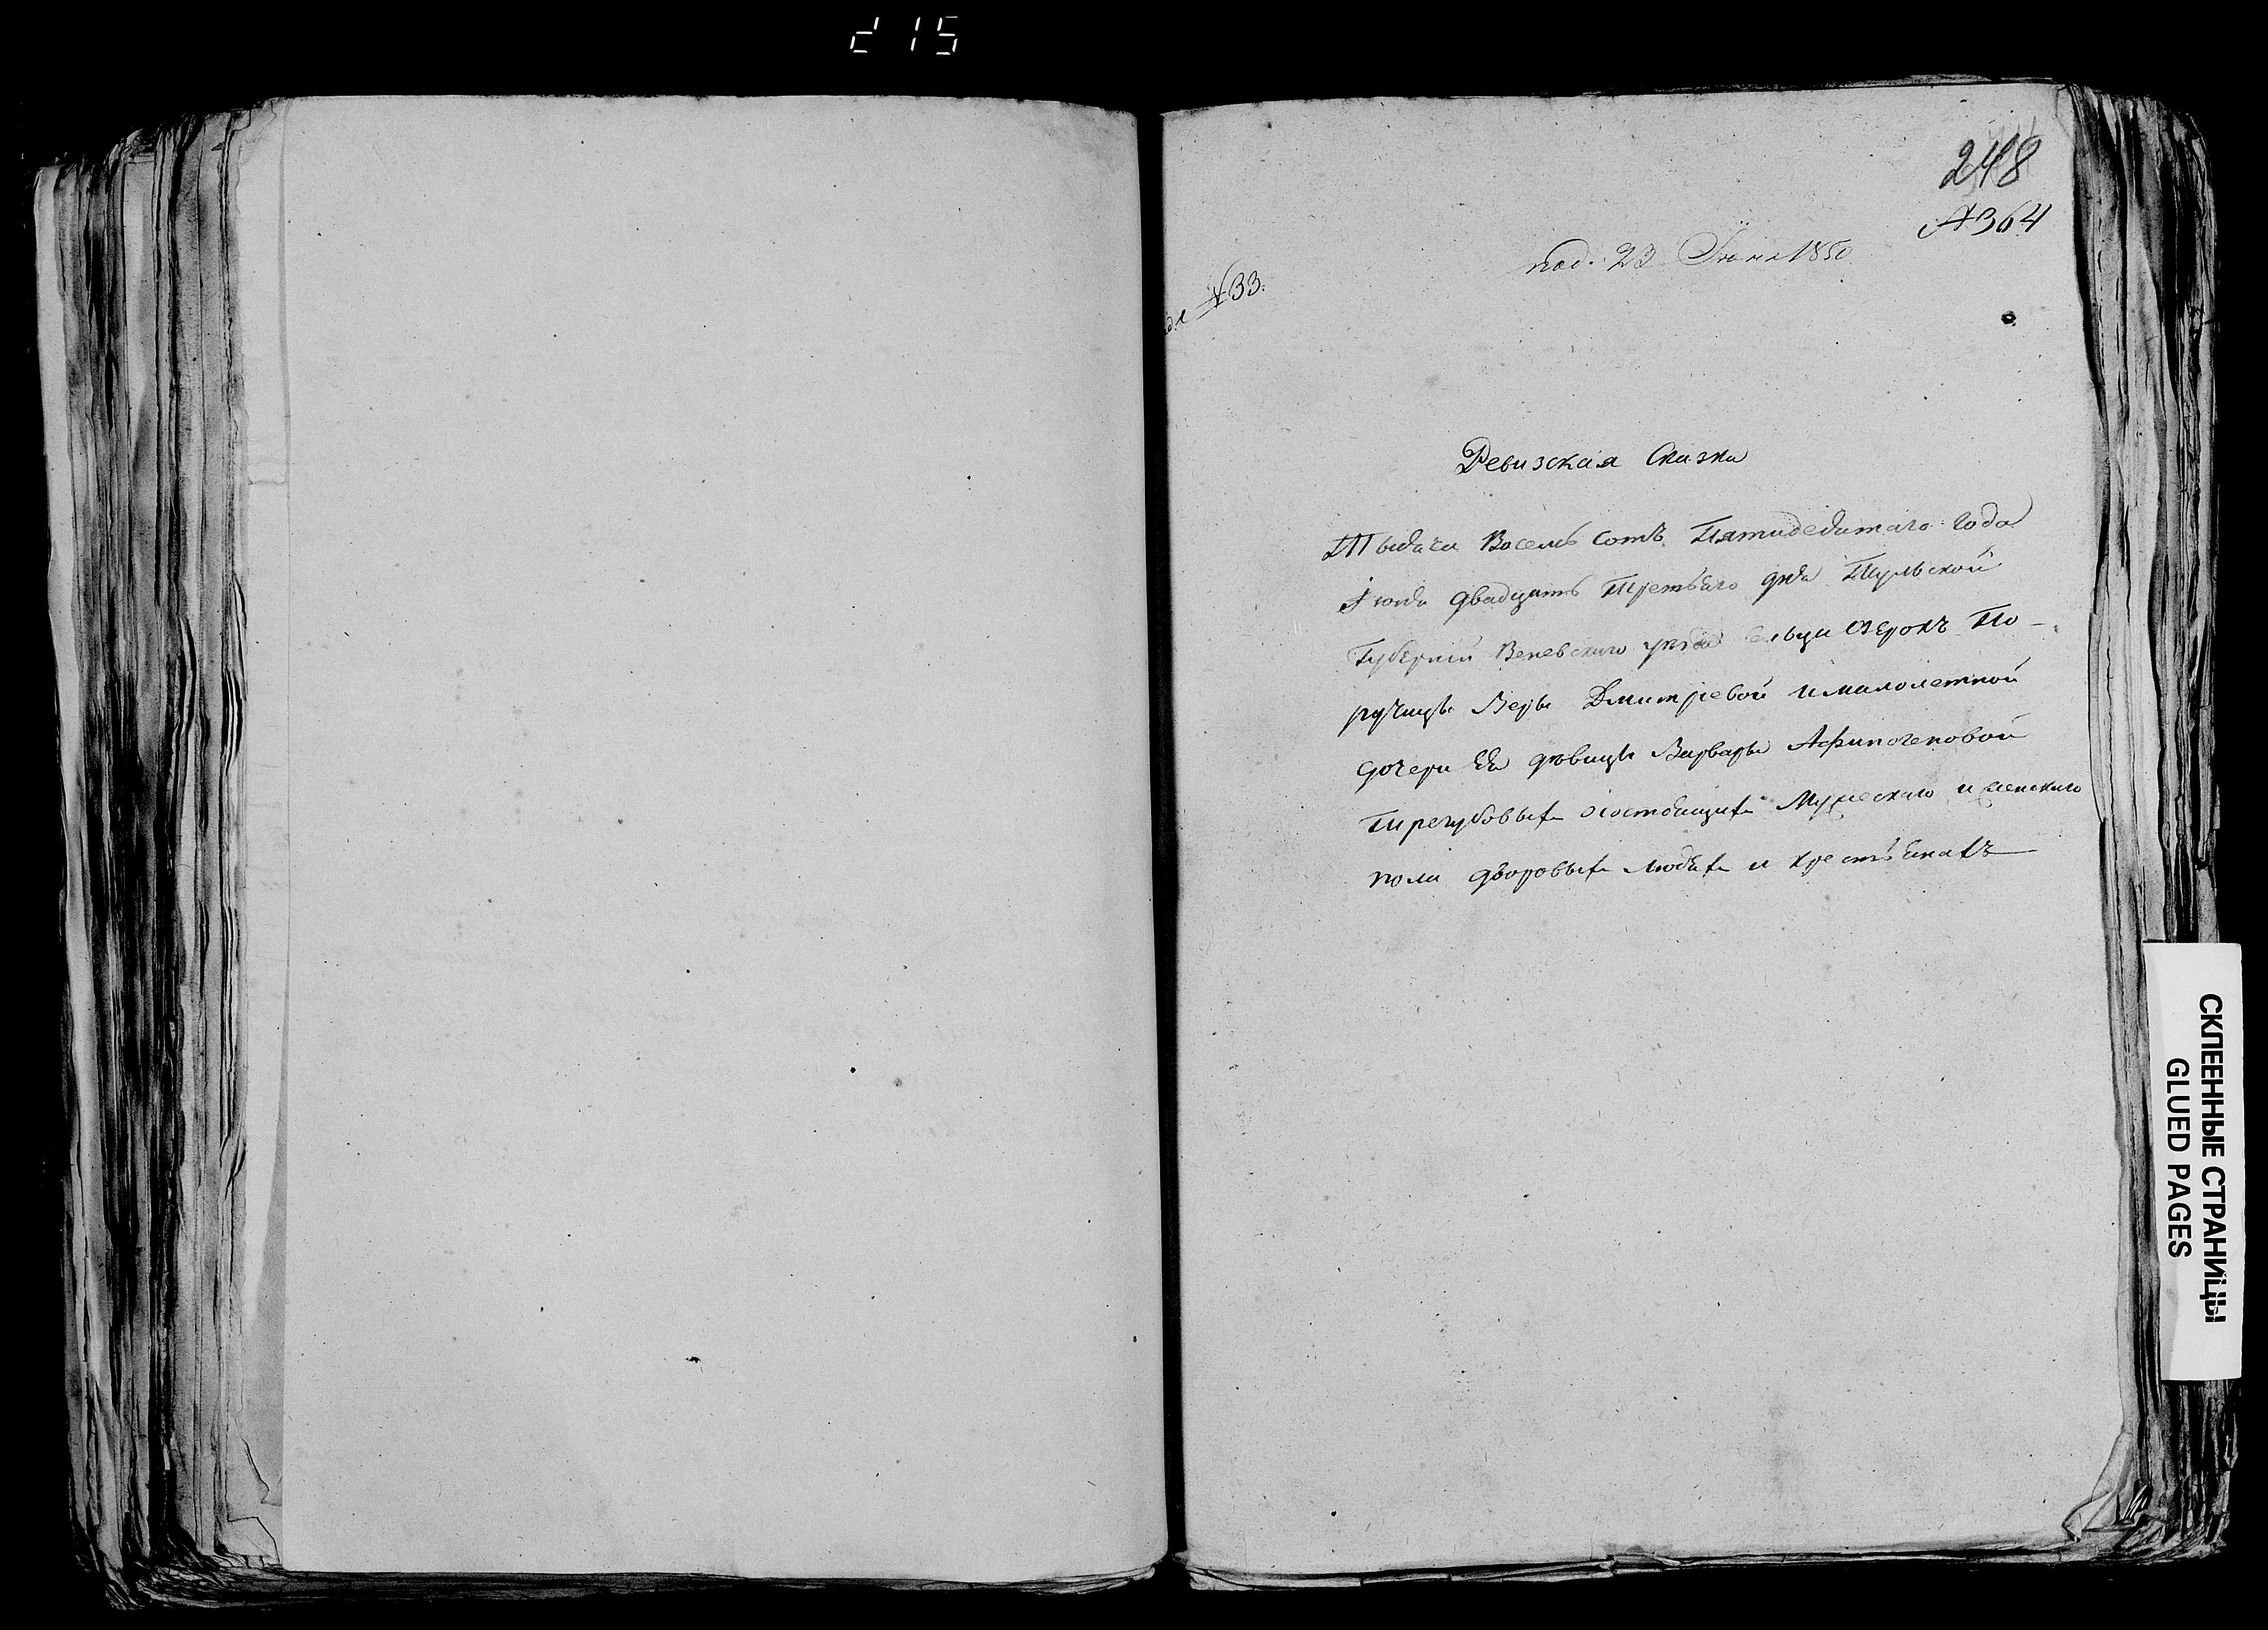 215
248
№364
под. 23 Июня 1850
№33.
Ревизская Сказка
Тысяча Восемь сотъ Пятидесятаго года
Іюня двадцать Третьяго дня Тульской
Губерніи Веневского уезда сельца Озерокъ По-
ручицы Веры Дмитріевой и малолетной
дочери Ея девицы Варвары Афиногеновой
Трегубовыхъ о состоящихъ Мужеского и женского
пола дворовыхъ людяхъ и крестьянахъ
СКЛЕЕННЫЕ СТРАНИЦЫ
GLUED PAGES